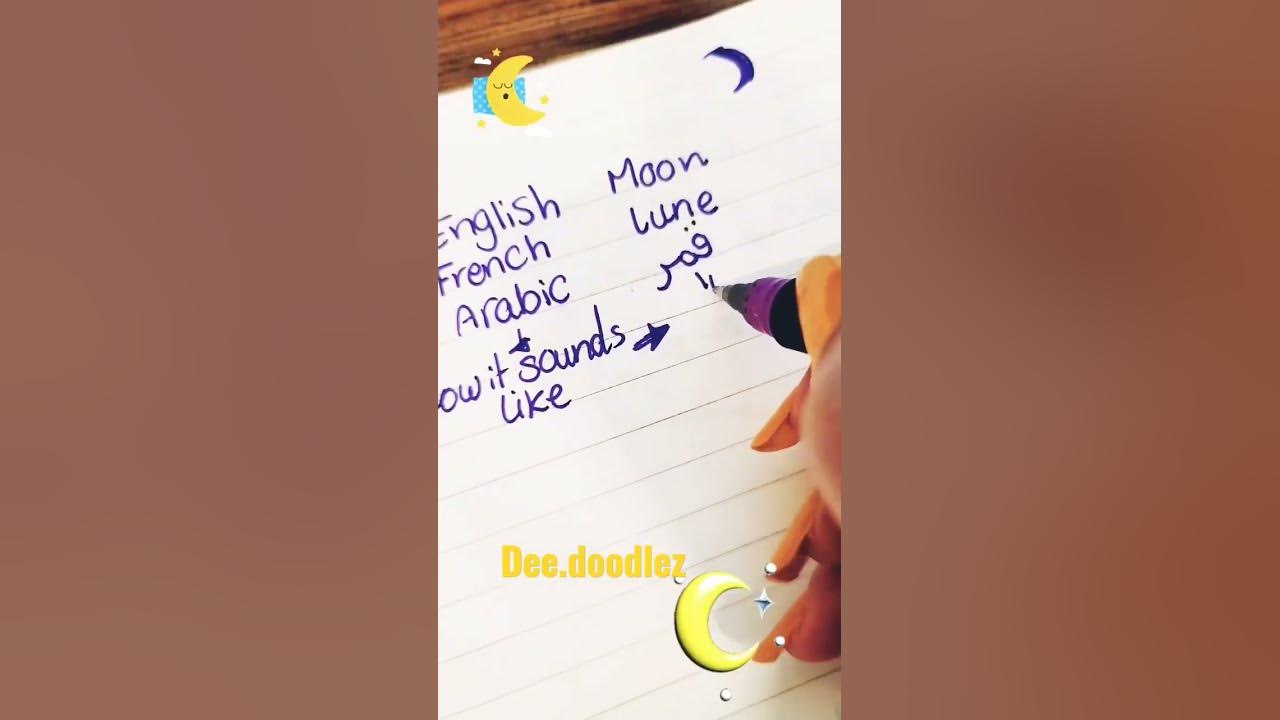 English Moon
French lune
Arabic قمر
ow it sounds
like
Dee.doodlez